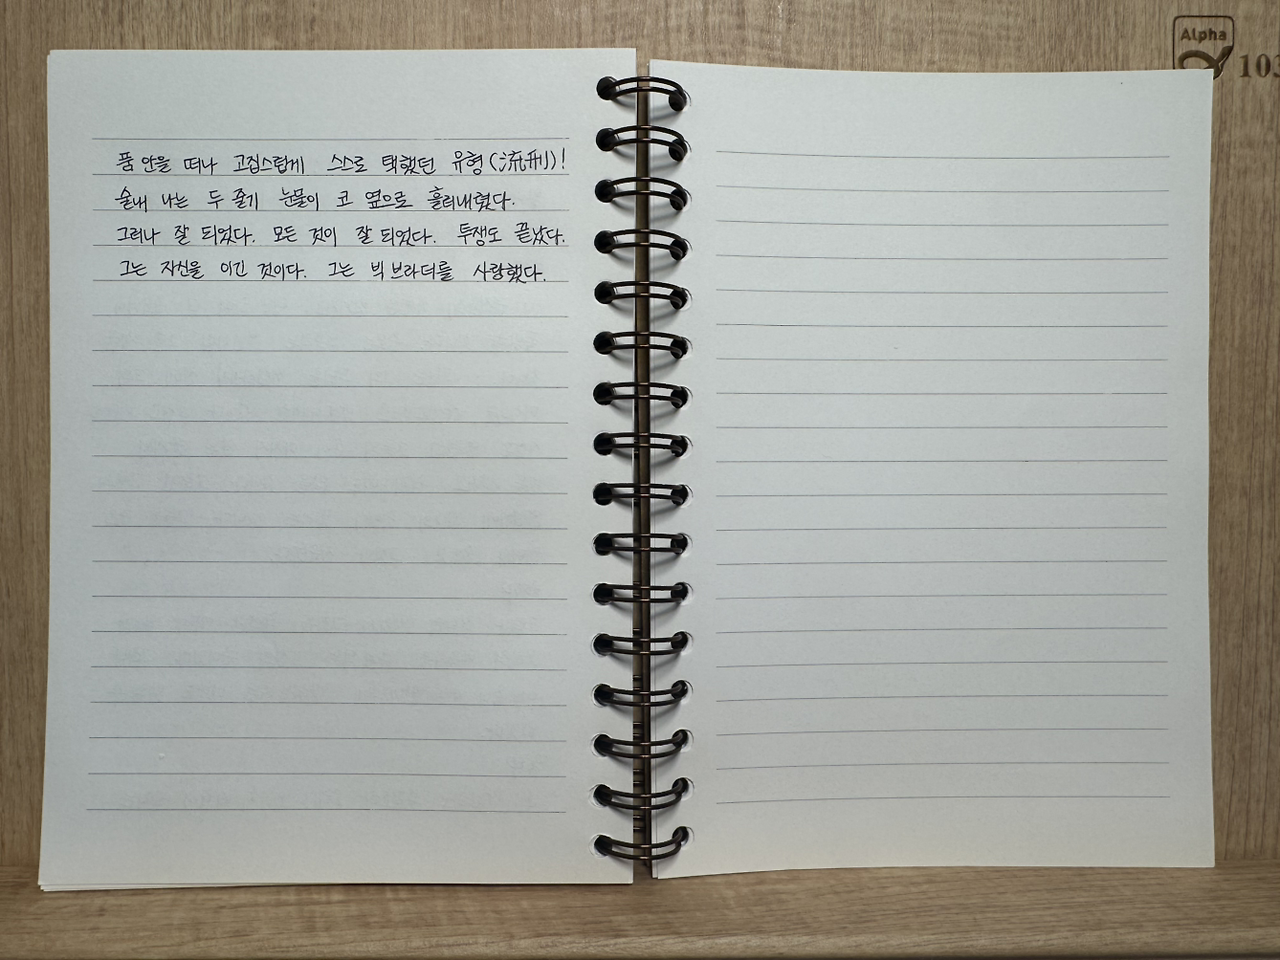 품 안을 떠나 고집스럽게 스스로 택했던 유형(流刑)!
술내 나는 두 줄기 눈물이 코 옆으로 흘러내렸다.
그러나 잘 되었다. 모든 것이 잘 되었다. 투쟁도 끝났다.
그는 자신을 이긴 것이다. 그는 빅브라더를 사랑했다.
Alpha
103